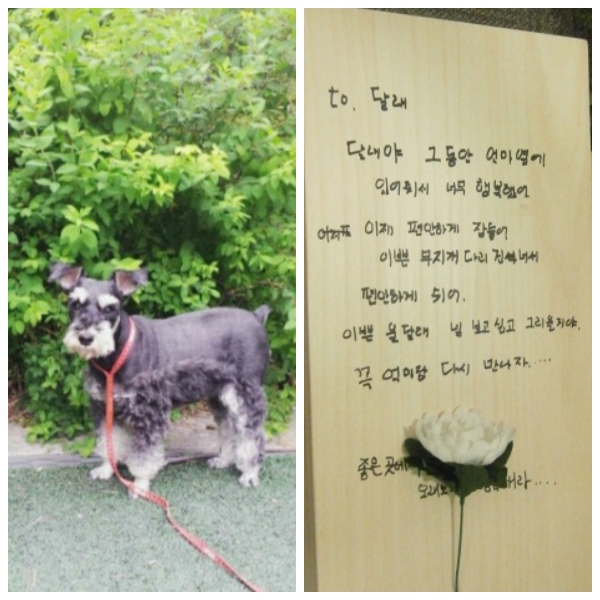 to. 달래
달래야 그동안 엄마옆에
있어줘서 너무 행복했어
이제 편안하게 잠들어
이쁜 무지개 다리 건너서
편안하게 쉬어.
이쁜 울달래 넘 보고싶고 그리울거야.
꼭 엄마랑 다시 만나자....
좋은곳에